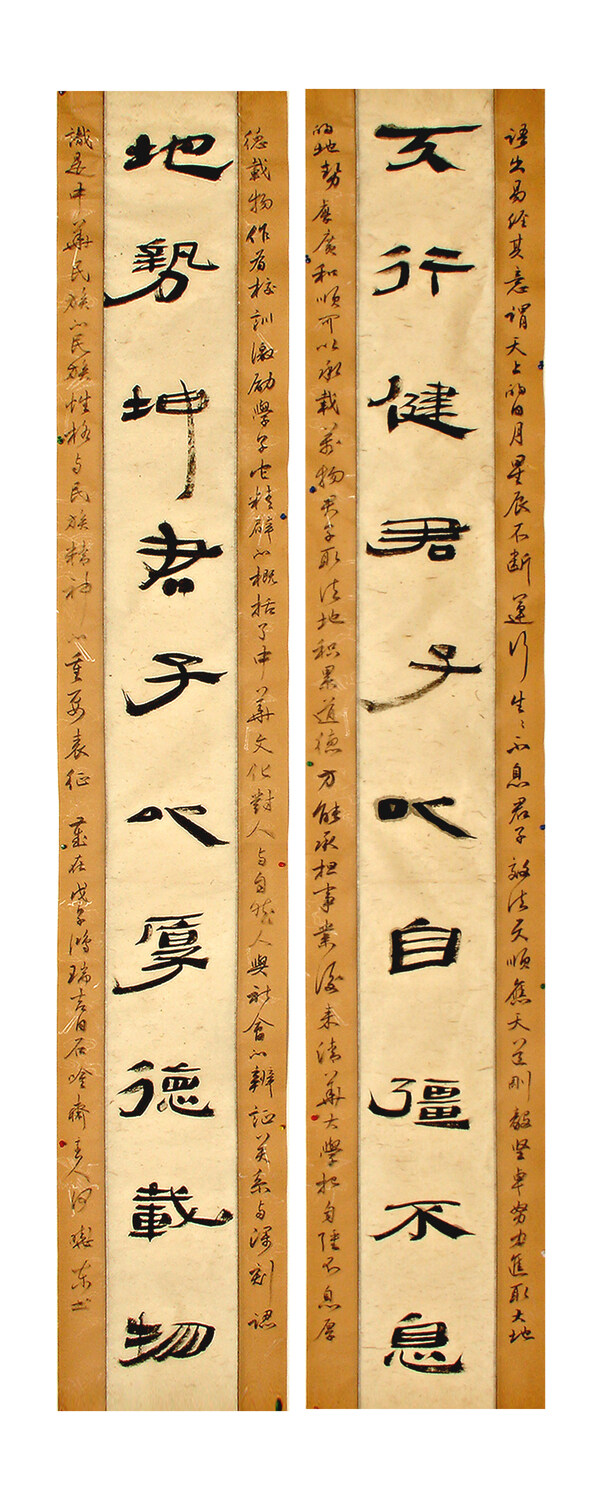 語出易經其意謂天上的日月星辰不断運行生生不息君子效法天順應天道剛毅坚卓努力進取大地
天行健君子以自彊不息
的地勢厚廣和順可以承載萬物君子取法地积累道德方能承担事業後来清華大學把自强不息厚
德載物作为校訓激励學子它精辟的概括了中華文化對人与自然人與社會的辩証关系与深刻認
地勢坤君子以厚德載物
識是中華民族的民族性格与民族精神的重要表征 歲在戊子鴻瑞吉日石唫齋主人